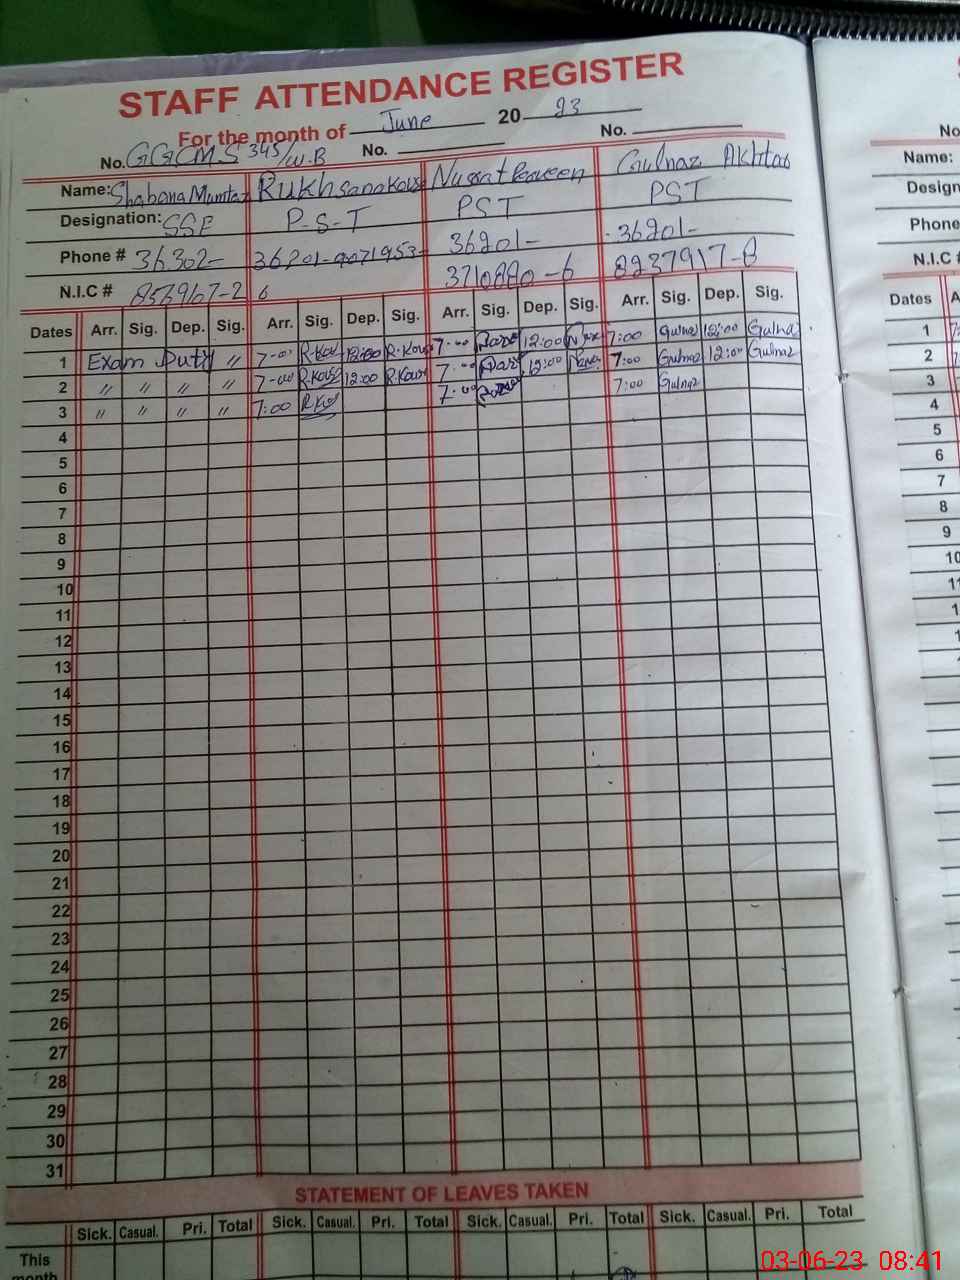 STAFF ATTENDANCE REGISTER
For the month of June 20 23
No. GGCMS 345/W.B No. No.
Name: Shabana Mumtaz Rukhsana Kousar Nusrat Parveen Gulnaz Akhtar
Designation: SSE P-S-T PST PST
Phone # 36302- 36201- 36201- 36201-
N.I.C # 8237917-8
Dates Arr. Sig. Dep. Sig. Arr. Sig. Dep. Sig. Arr. Sig. Dep. Sig. Arr. Sig. Dep. Sig.
1 Exam Duty 〃 7-00 R.Kou 12:00 R.Kou 7-00 12:00 7:00 Gulnaz 12:00 Gulnaz
2 〃 〃 〃 〃 7-00 R.Kous 12:00 R.Kous 7-00 12:00 7:00 Gulnaz 12:00 Gulnaz
3 〃 〃 〃 〃 7:00 R.Kous 7-00 7:00 Gulnaz
4
5
6
7
8
9
10
11
12
13
14
15
16
17
18
19
20
21
22
23
24
25
26
27
28
29
30
31
STATEMENT OF LEAVES TAKEN
Sick. Casual. Pri. Total Sick. Casual. Pri. Total Sick. Casual. Pri. Total Sick. Casual. Pri. Total
This
month
No
Name:
Design
Phone
N.I.C #
Dates A
1
2
3
4
5
6
7
8
9
10
11
03-06-23 08:41